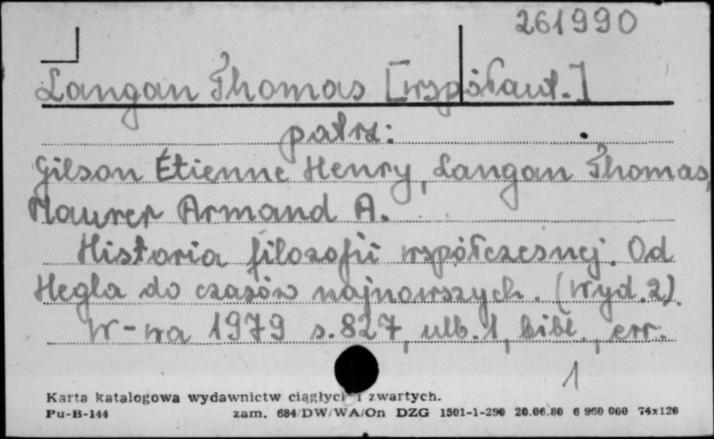 261990
Langan Thomas [współaut.]
patrz:
Gilson Étienne Henry, Langan Thomas,
Maurer Armand A.
Historia filozofii współczesnej. Od
Hegla do czasów najnowszych. (Wyd. 2).
W-wa 1979 s. 827, nlb. 1, bibl., err.
1
Karta katalogowa wydawnictw ciągłych i zwartych.
Pu-B-144 zam. 684/DW/WA/On DZG 1501-1-290 20.06.80 6 960 000 74x120